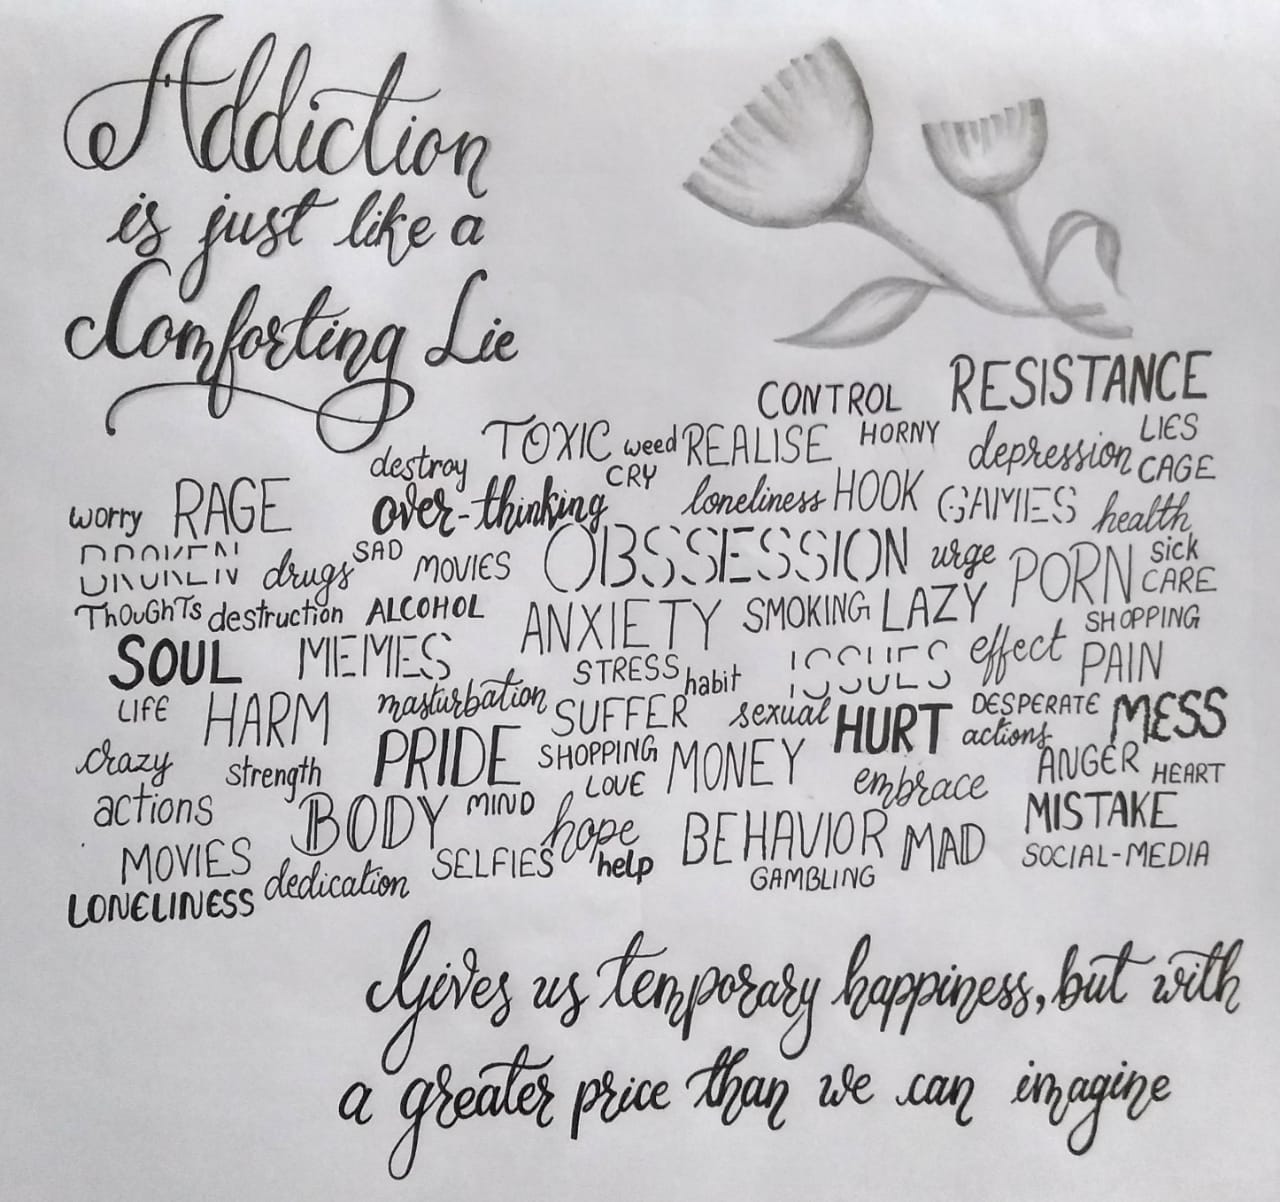 Addiction
is just like a
Comforting Lie
CONTROL RESISTANCE
destroy TOXIC weed REALISE HORNY depression LIES
CRY CAGE
worry RAGE over-thinking loneliness HOOK GAMES health
BROKEN drugs SAD MOVIES OBSSESSION urge PORN sick
CARE
ThoUGhTs destruction ALCOHOL ANXIETY SMOKING LAZY SHOPPING
SOUL MEMES STRESS habit ISSUES effect PAIN
LIFE HARM masturbation SUFFER sexual HURT DESPERATE MESS
actions
crazy strength PRIDE SHOPPING MONEY embrace ANGER HEART
LOVE
actions BODY MIND hope BEHAVIOR MAD MISTAKE
MOVIES SELFIES help SOCIAL-MEDIA
LONELINESS dedication GAMBLING
Gives us temporary happiness, but with
a greater price than we can imagine